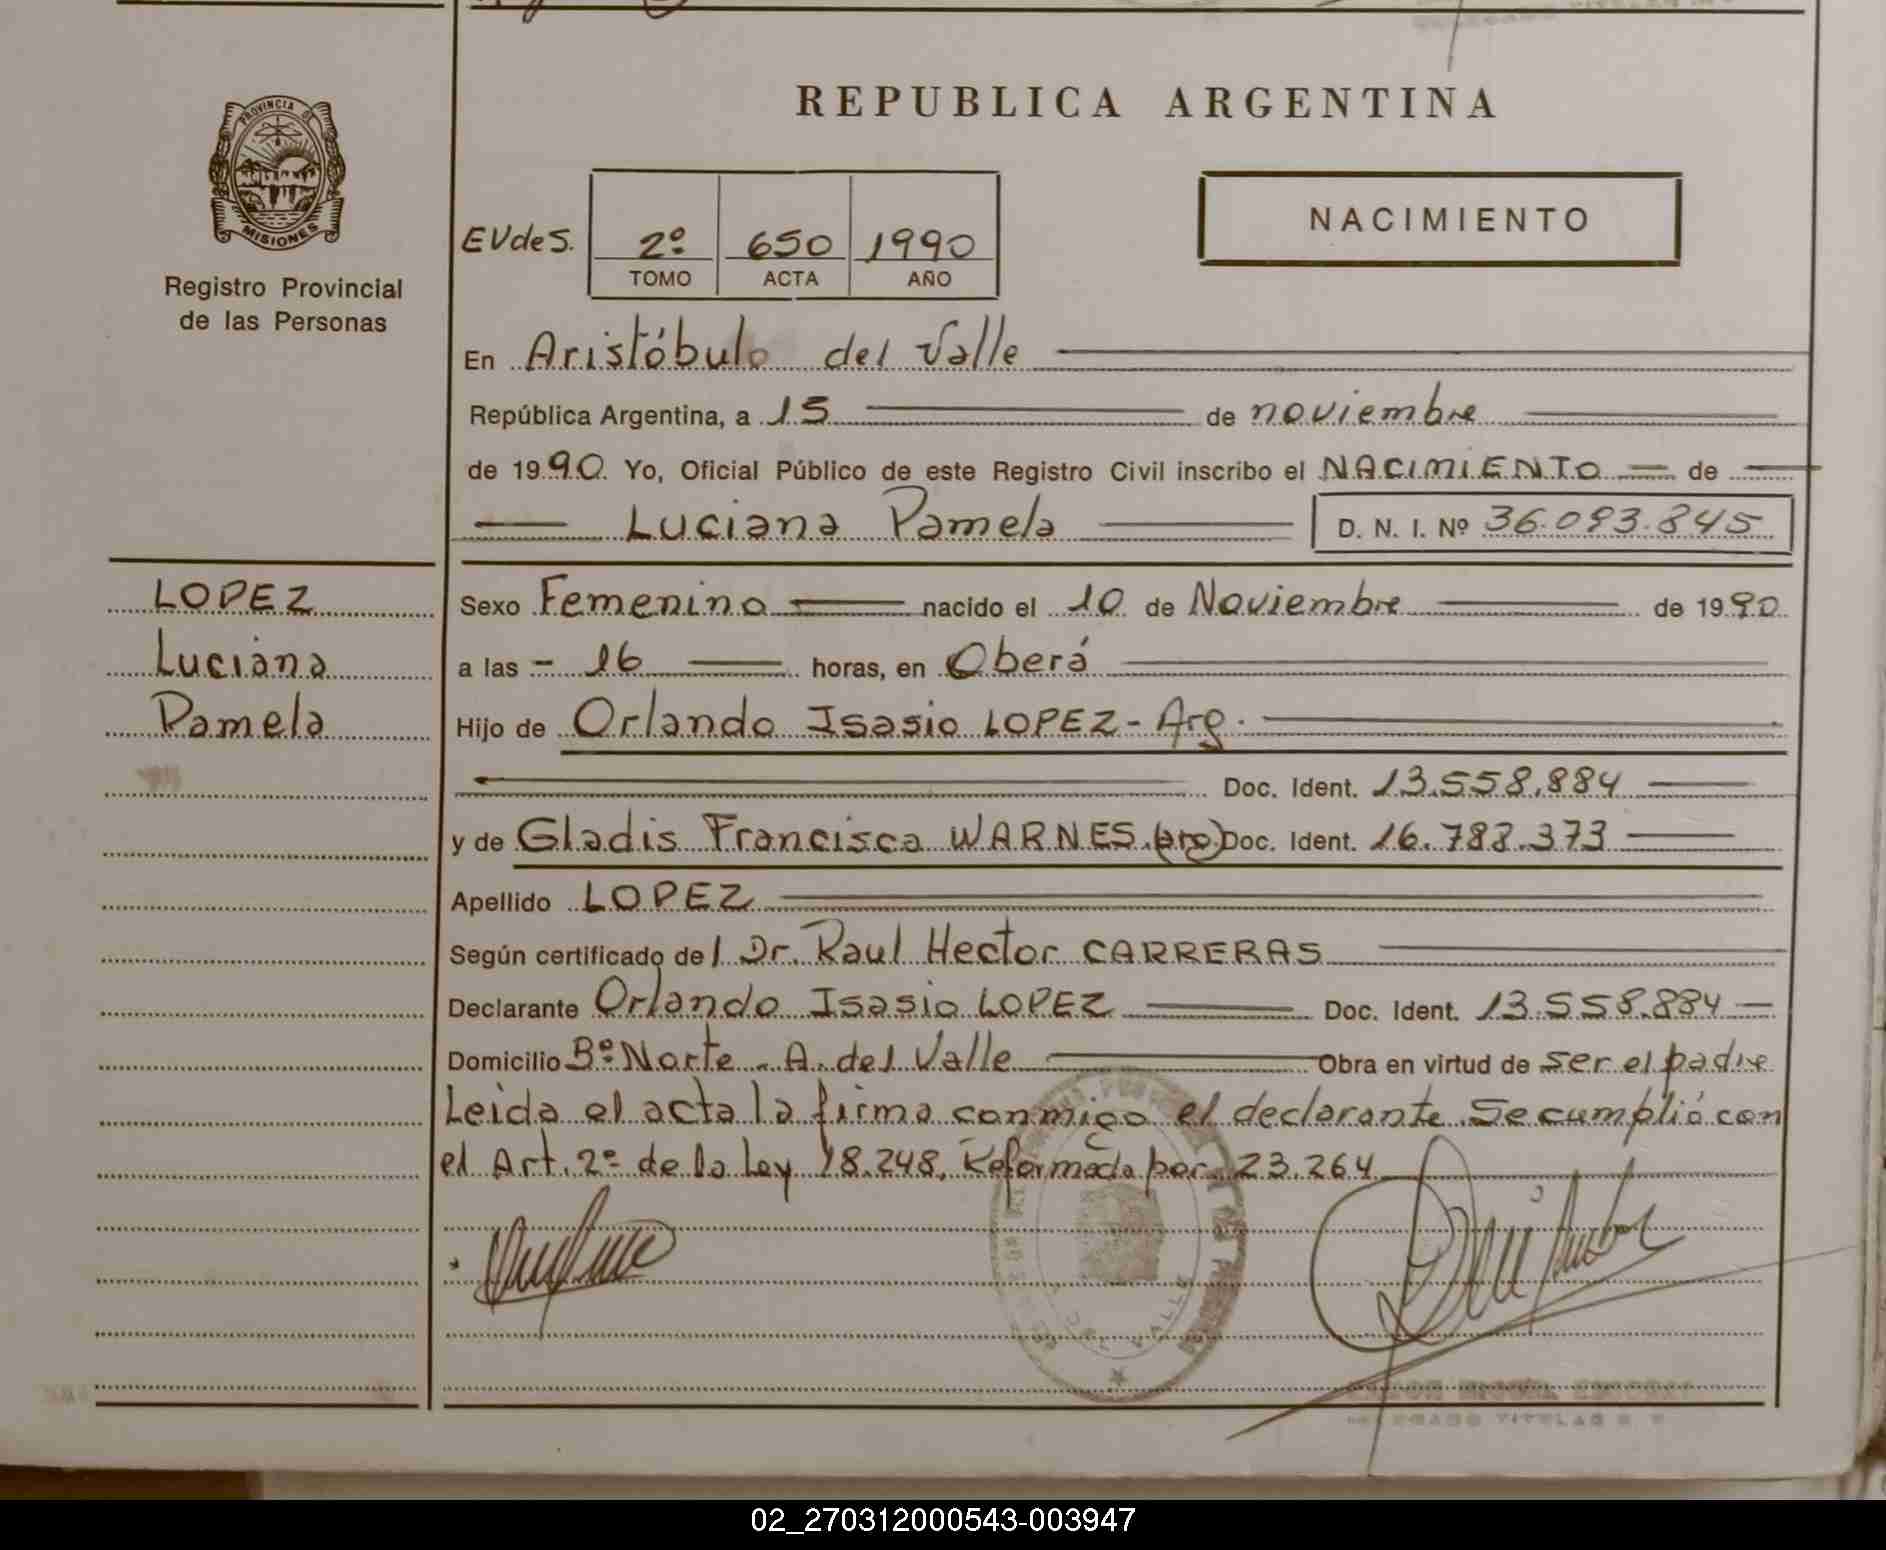 REPUBLICA ARGENTINA
PROVINCIA DE
MISIONES
Registro Provincial
de las Personas
EVdeS. 2º 650 1990
TOMO ACTA AÑO
NACIMIENTO
En Aristóbulo del Valle
República Argentina, a 15 de noviembre
de 1990. Yo, Oficial Público de este Registro Civil inscribo el NACIMIENTO de
Luciana Pamela D. N. I. Nº 36.093.845
LOPEZ
Luciana
Pamela
Sexo Femenino nacido el 10 de Noviembre de 1990
a las - 16 horas, en Oberá
Hijo de Orlando Isasio LOPEZ - Arg.
Doc. Ident. 13.558.884
y de Gladis Francisca WARNES (arg) Doc. Ident. 16.788.373
Apellido LOPEZ
Según certificado del Dr. Raul Hector CARRERAS
Declarante Orlando Isasio LOPEZ Doc. Ident. 13.558.884
Domicilio Bº Norte - A. del Valle Obra en virtud de ser el padre
Leida el acta la firma conmigo el declarante. Se cumplió con
el Art. 2º de la Ley 18.248, Reformada por 23.264
DEL VALLE
TITULAR
02_270312000543-003947